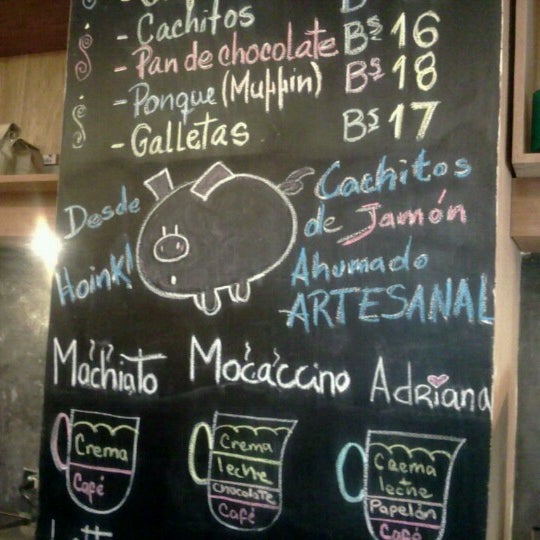 Bs
- Cachitos Bs 16
- Pan de chocolate Bs 18
- Ponque (Muffin)
- Galletas Bs 17
Desde
Hoink!
Cachitos
de Jamón
Ahumado
ARTESANAL
Machiato
Crema
Café
Mocaccino
Crema
leche
chocolate
Café
Adriana
Crema
leche
Papelón
Café